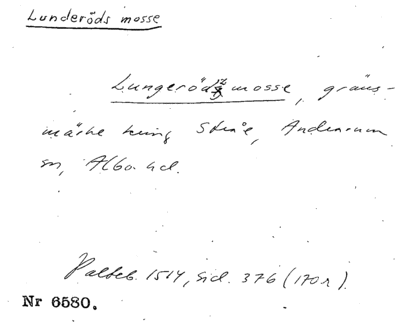 Lunderöds mosse
Lungerödz mosse, gräns-
märke kring Stenåe, Andrarum
sn, Albo hd.
Palteb. 1514, sid. 376 (170 r).
Nr 6580.